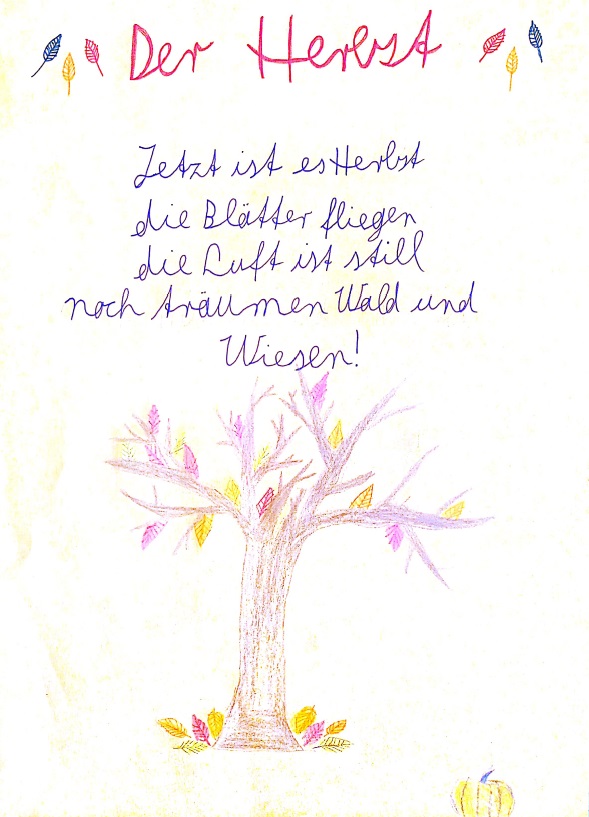 Der Herbst
Jetzt ist es Herbst
die Blätter fliegen
die Luft ist still
noch träumen Wald und
Wiesen!